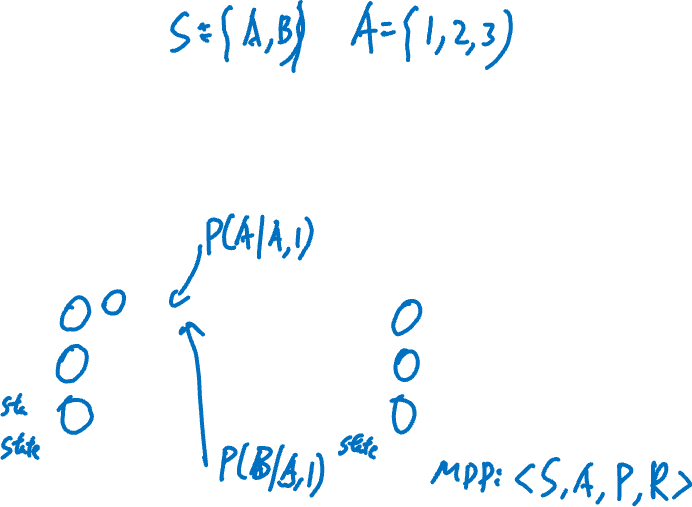 S = {A, B} A = {1, 2, 3}
P(A|A,1)
sta
state
P(B|A,1)
state
MDP: <S, A, P, R>